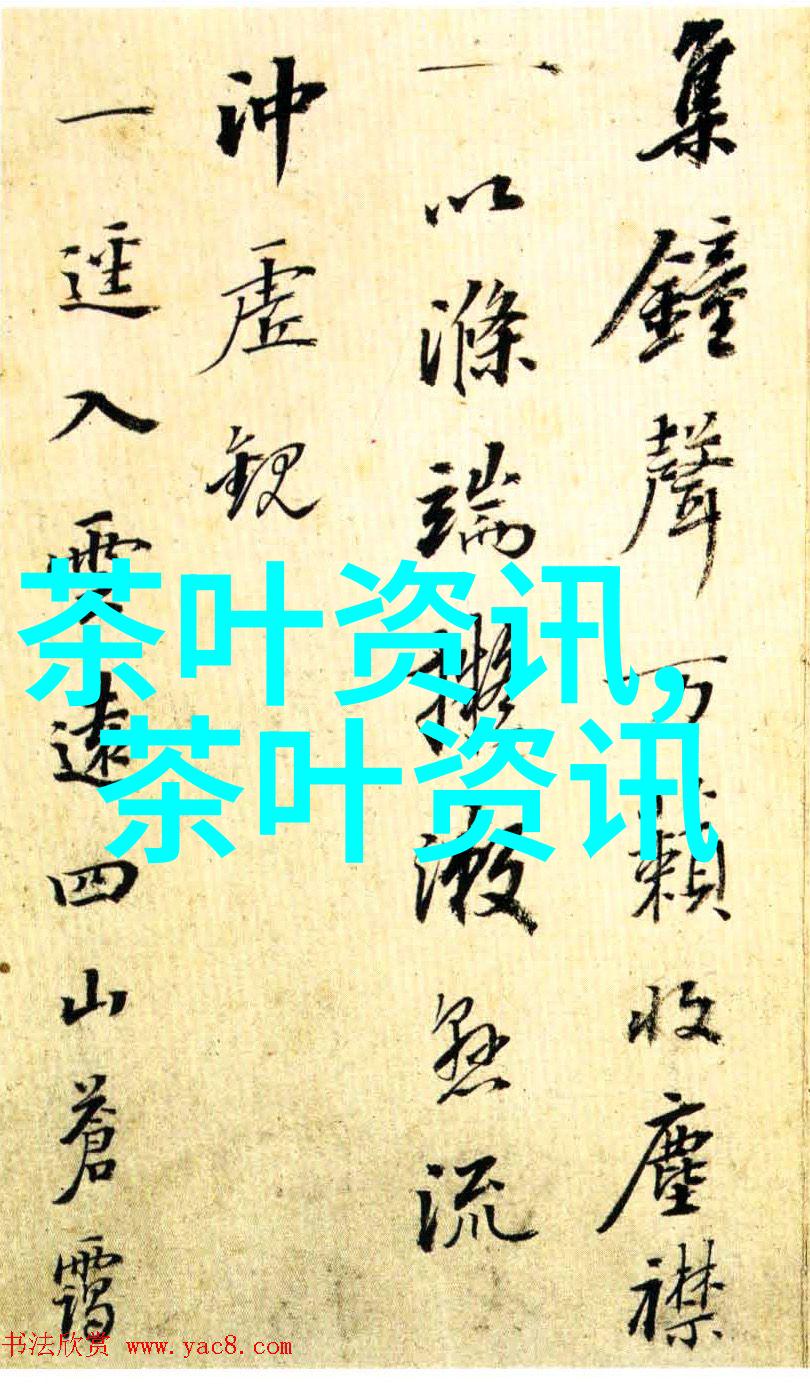 集鐘聲万籟收塵襟
一以滌端擬漱懸流
沖虛觀
一逕入雲遠四山蒼靄
茶叶资讯,
茶叶资讯
书法欣赏 www.yac8.com